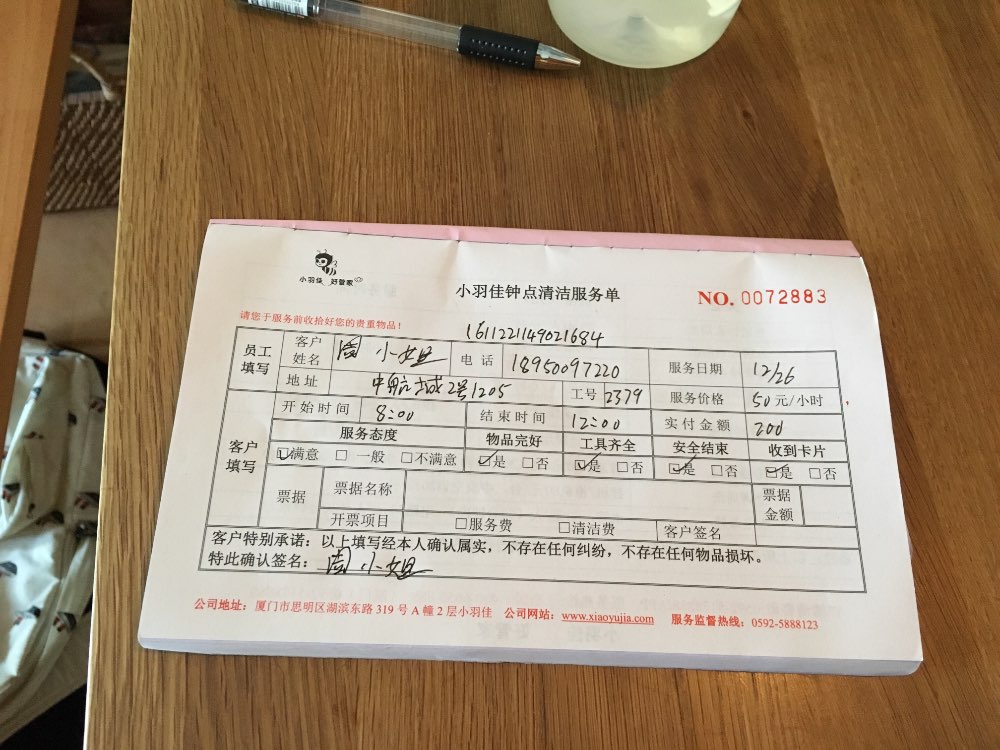 小羽佳 好管家
小羽佳钟点清洁服务单
NO. 0072883
请您于服务前收拾好您的贵重物品！
161122149021684
员工填写 客户姓名 周小姐 电话 18950097220 服务日期 12/26
地址 中航城2号1205 工号 2379 服务价格 50元/小时
客户填写 开始时间 8:00 结束时间 12:00 实付金额 200
服务态度 物品完好 工具齐全 安全结束 收到卡片
☑满意 □一般 □不满意 ☑是 □否 ☑是 □否 ☑是 □否 ☑是 □否
票据 票据名称 票据金额
开票项目 □服务费 □清洁费 客户签名
客户特别承诺：以上填写经本人确认属实，不存在任何纠纷，不存在任何物品损坏。
特此确认签名：周小姐
公司地址：厦门市思明区湖滨东路 319 号 A 幢 2 层小羽佳 公司网站：www.xiaoyujia.com 服务监督热线：0592-5888123